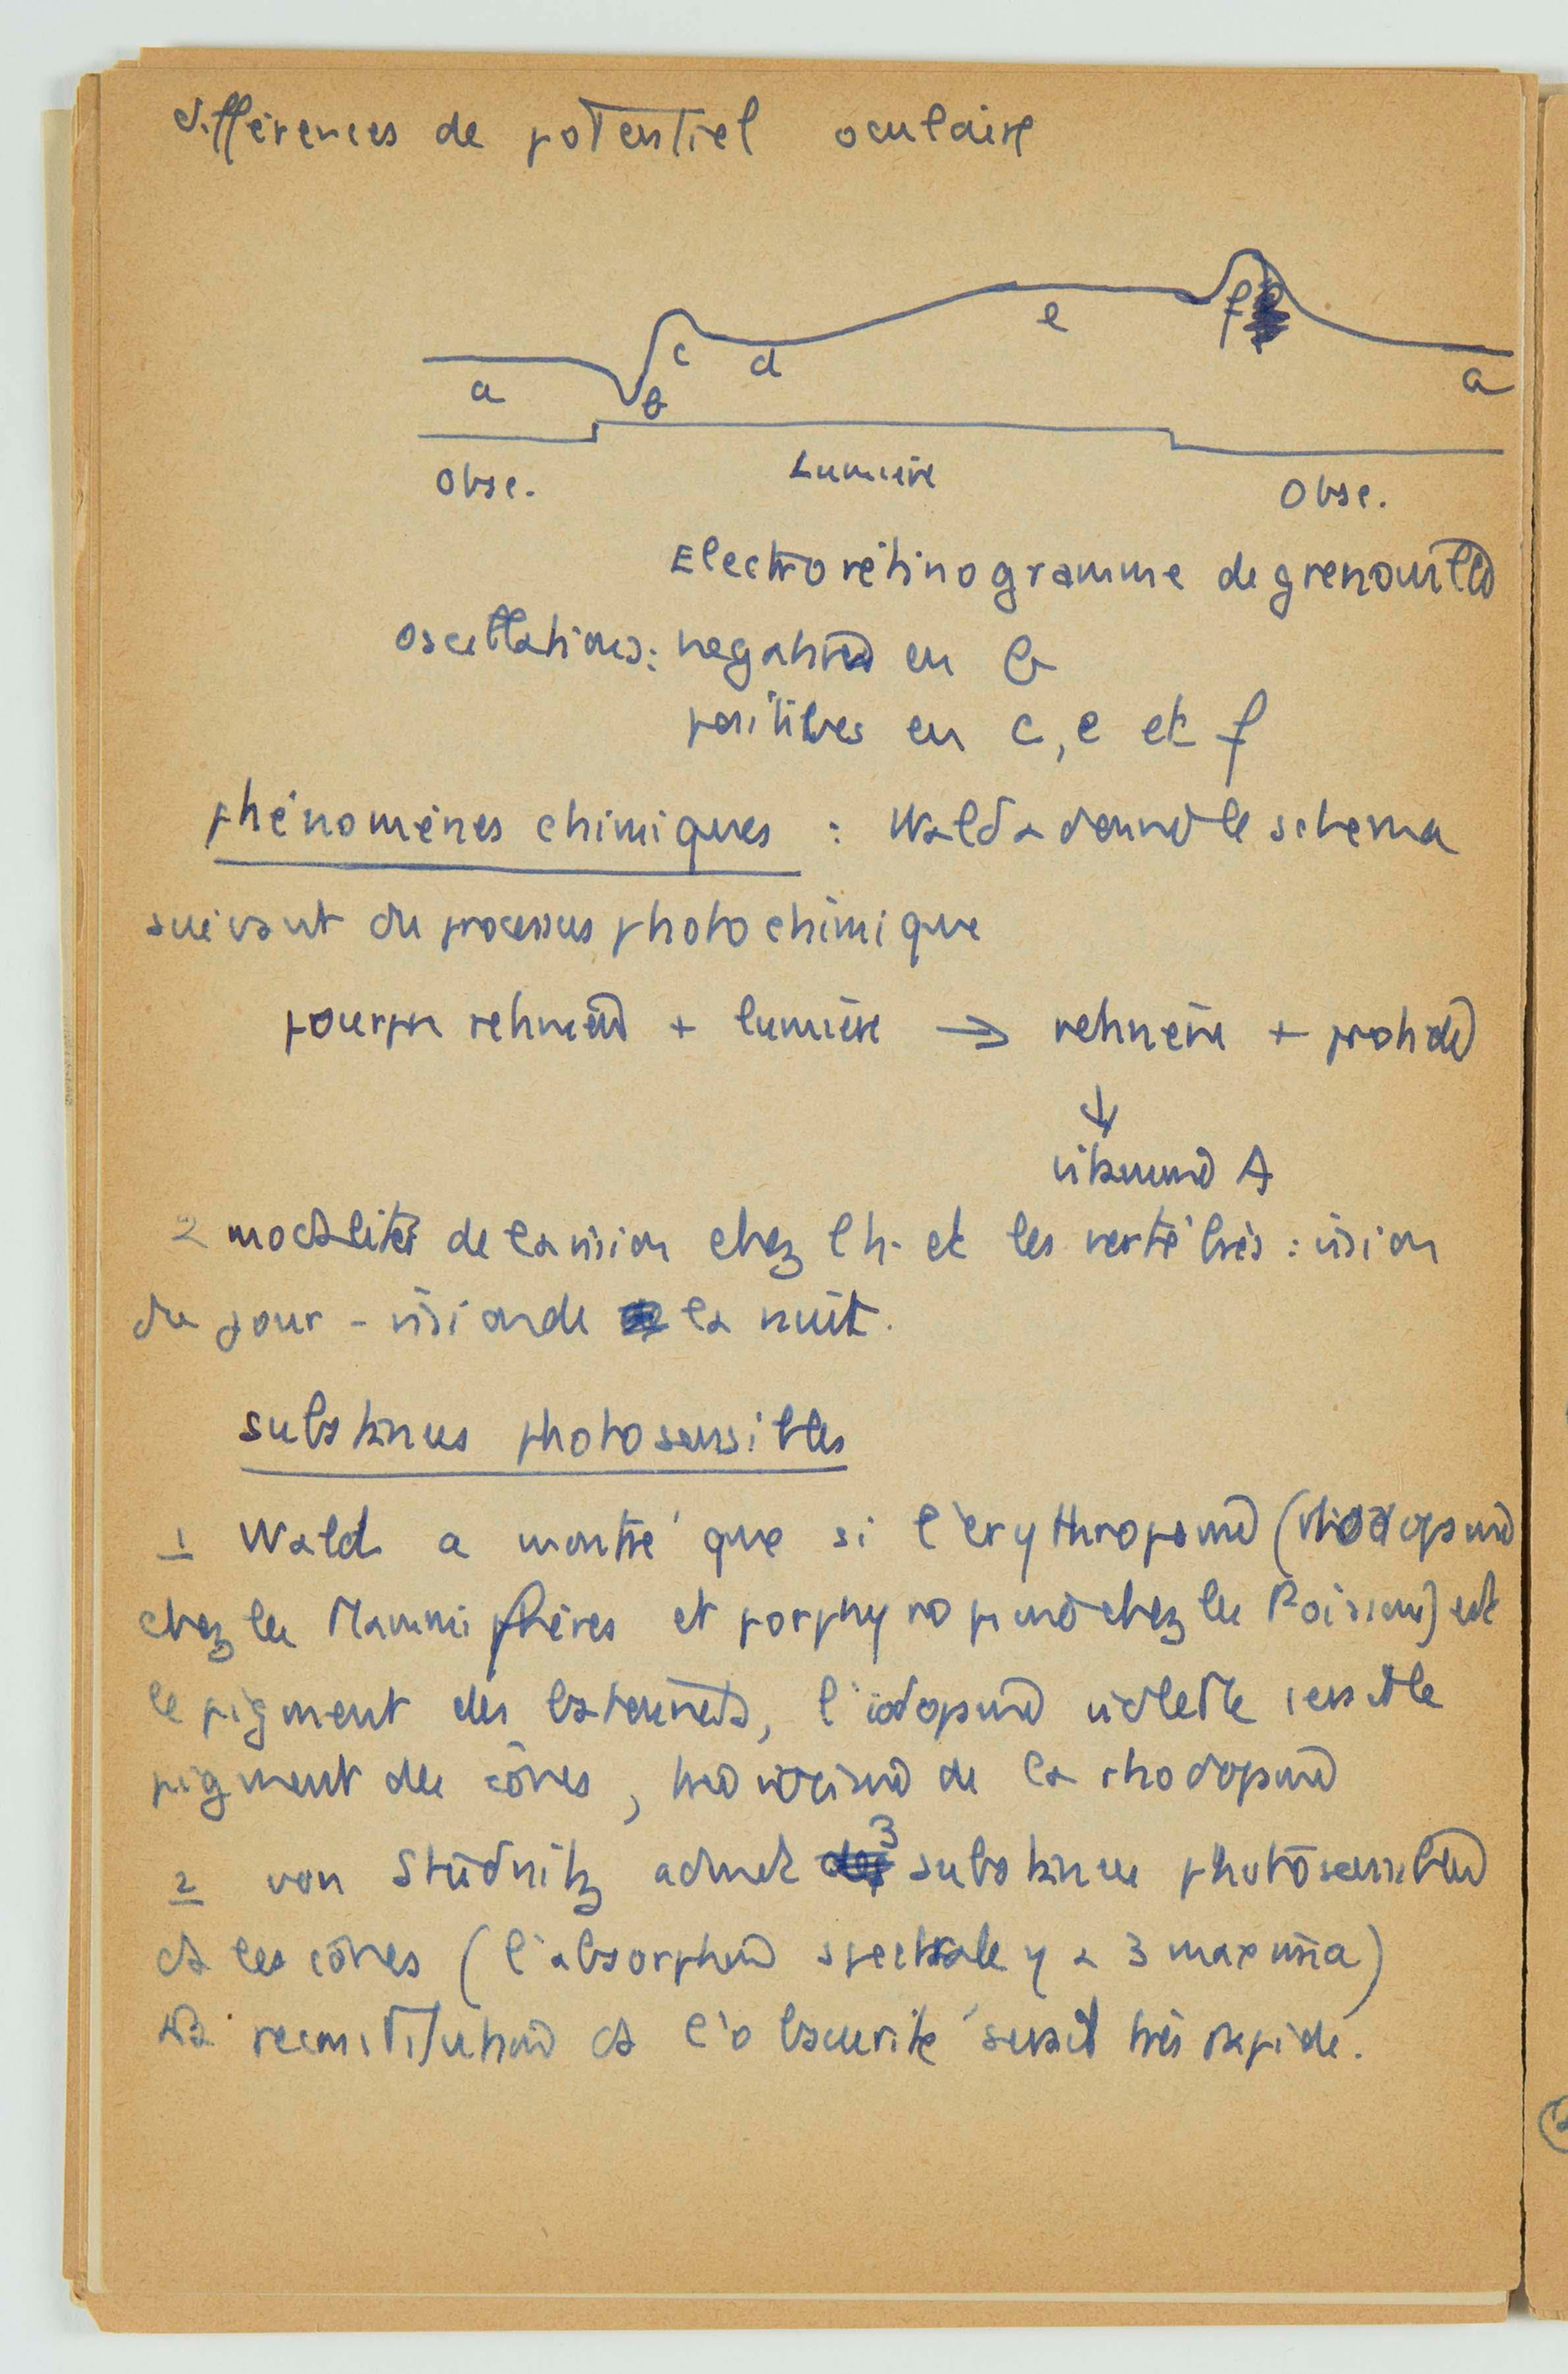 différences de potentiel oculaire
f
e
c
d
a
a
b
Obsc.
Lumière
Obsc.
Electrorétinogramme de grenouille
oscillations: negatives en b
positives en c, e et f
phénomènes chimiques : Wald a donné le schema
suivant du processus photochimique
pourpre retinien + lumière → retinène + protide
↓
vitamine A
2 modalités de la vision chez l'h. et les vertébrés : vision
du jour - vision de la nuit.
substances photosensibles
1 Wald a montré que si l'érythropsine (rhodopsine
chez les Mammiphères et porphyropsine chez les Poissons) est
le pigment des batonnets, l'iodopsine violette sensible
pigment des cônes, de la rhodopsine
2 von Studnitz admet 3 substances photosensibles
ds les cônes (l'absorption spectrale y a 3 maxima)
reconstitution ds l'obscurité serait très rapide.